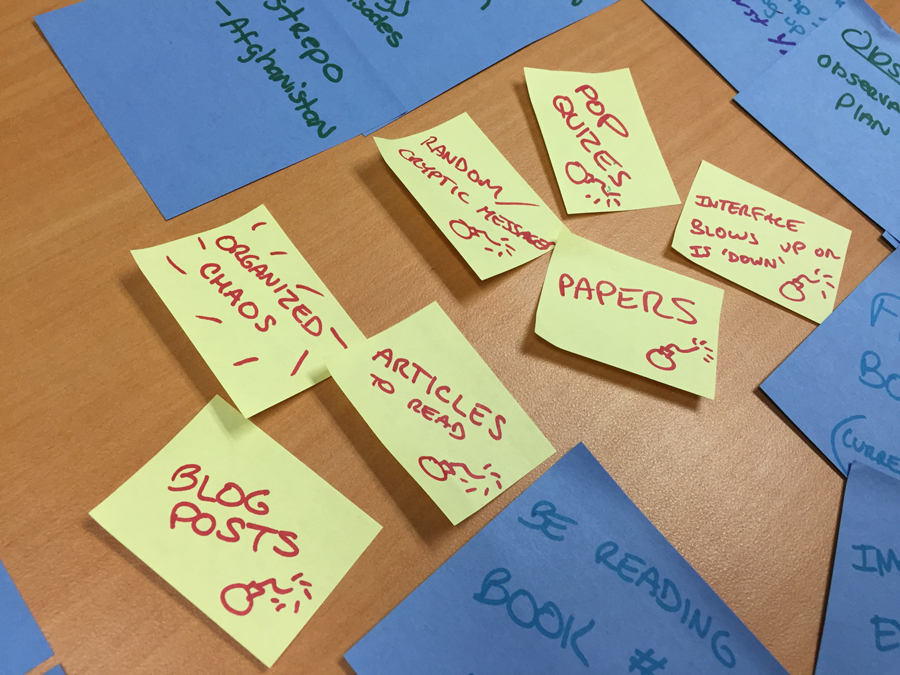 strepo
-Afghanistan
isodes
Obs
Observa
Plan
POP
QUIZES
RANDOM/
CRYPTIC MESSAGES
INTERFACE
BLOWS UP OR
IS 'DOWN'
ORGANIZED
CHAOS
PAPERS
ARTICLES
TO READ
BLOG
POSTS
BE READING
BOOK #
F
BO
(CURRE
IM
E